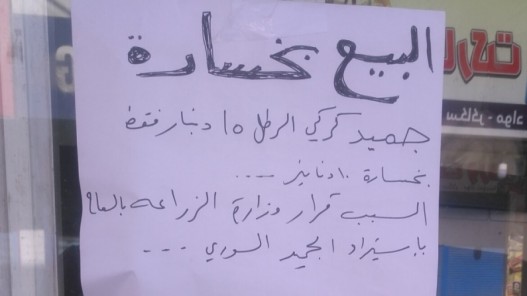 البيع بخسارة
جميد كركي الرطل ١٥ دينار فقط
بخسارة ١٠ دنانير ....
السبب قرار وزارة الزراعه
بإستيراد الجميد السوري ...
سكاكر - مواد